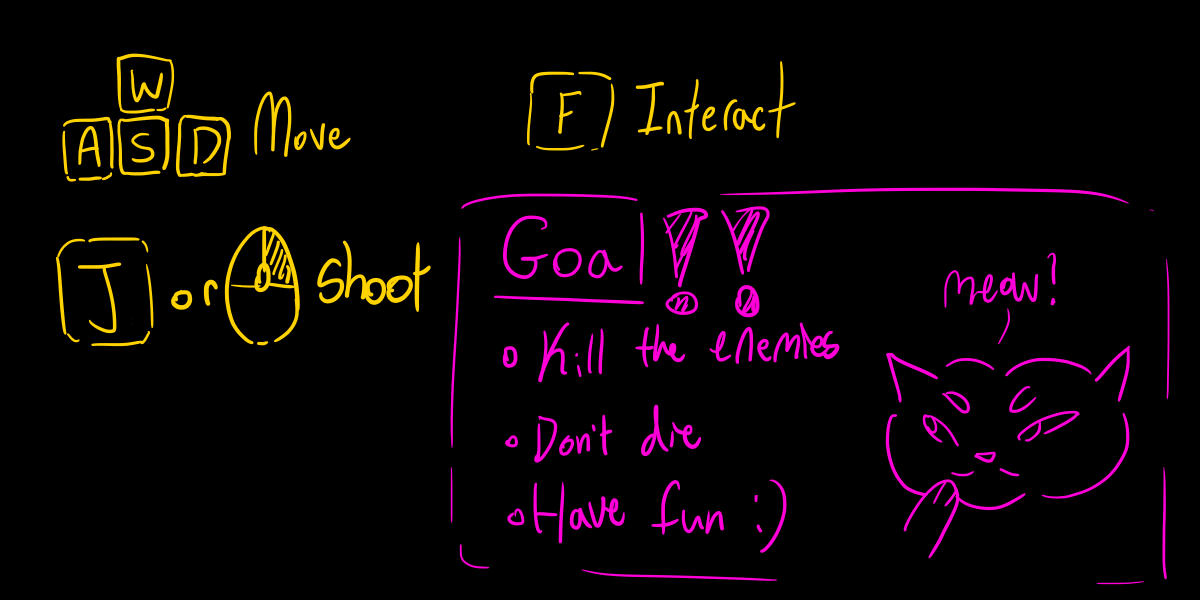 W
A S D Move
F Interact
J or shoot
Goal!!
Kill the enemies
Don't die
Have fun :)
meow?